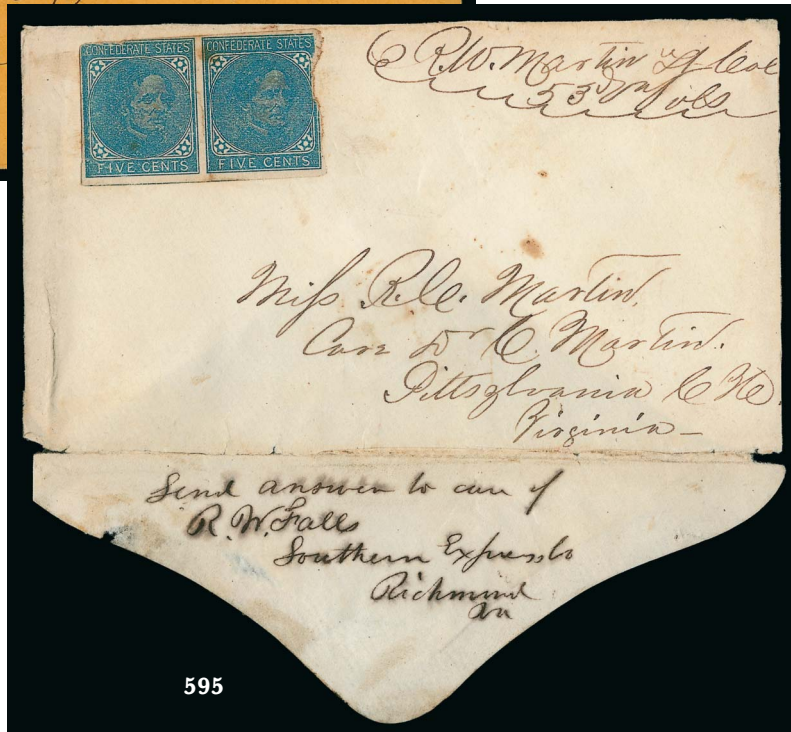 CONFEDERATE STATES CONFEDERATE STATES
FIVE CENTS FIVE CENTS
R.W. Martin Lt Col
53d Vols
Miss R.C. Martin
Care Dr C. Martin.
Pittsylvania C He
Virginia
Send answer to care of
R.W. Falls
Southern Express Co
Richmond
Va
595